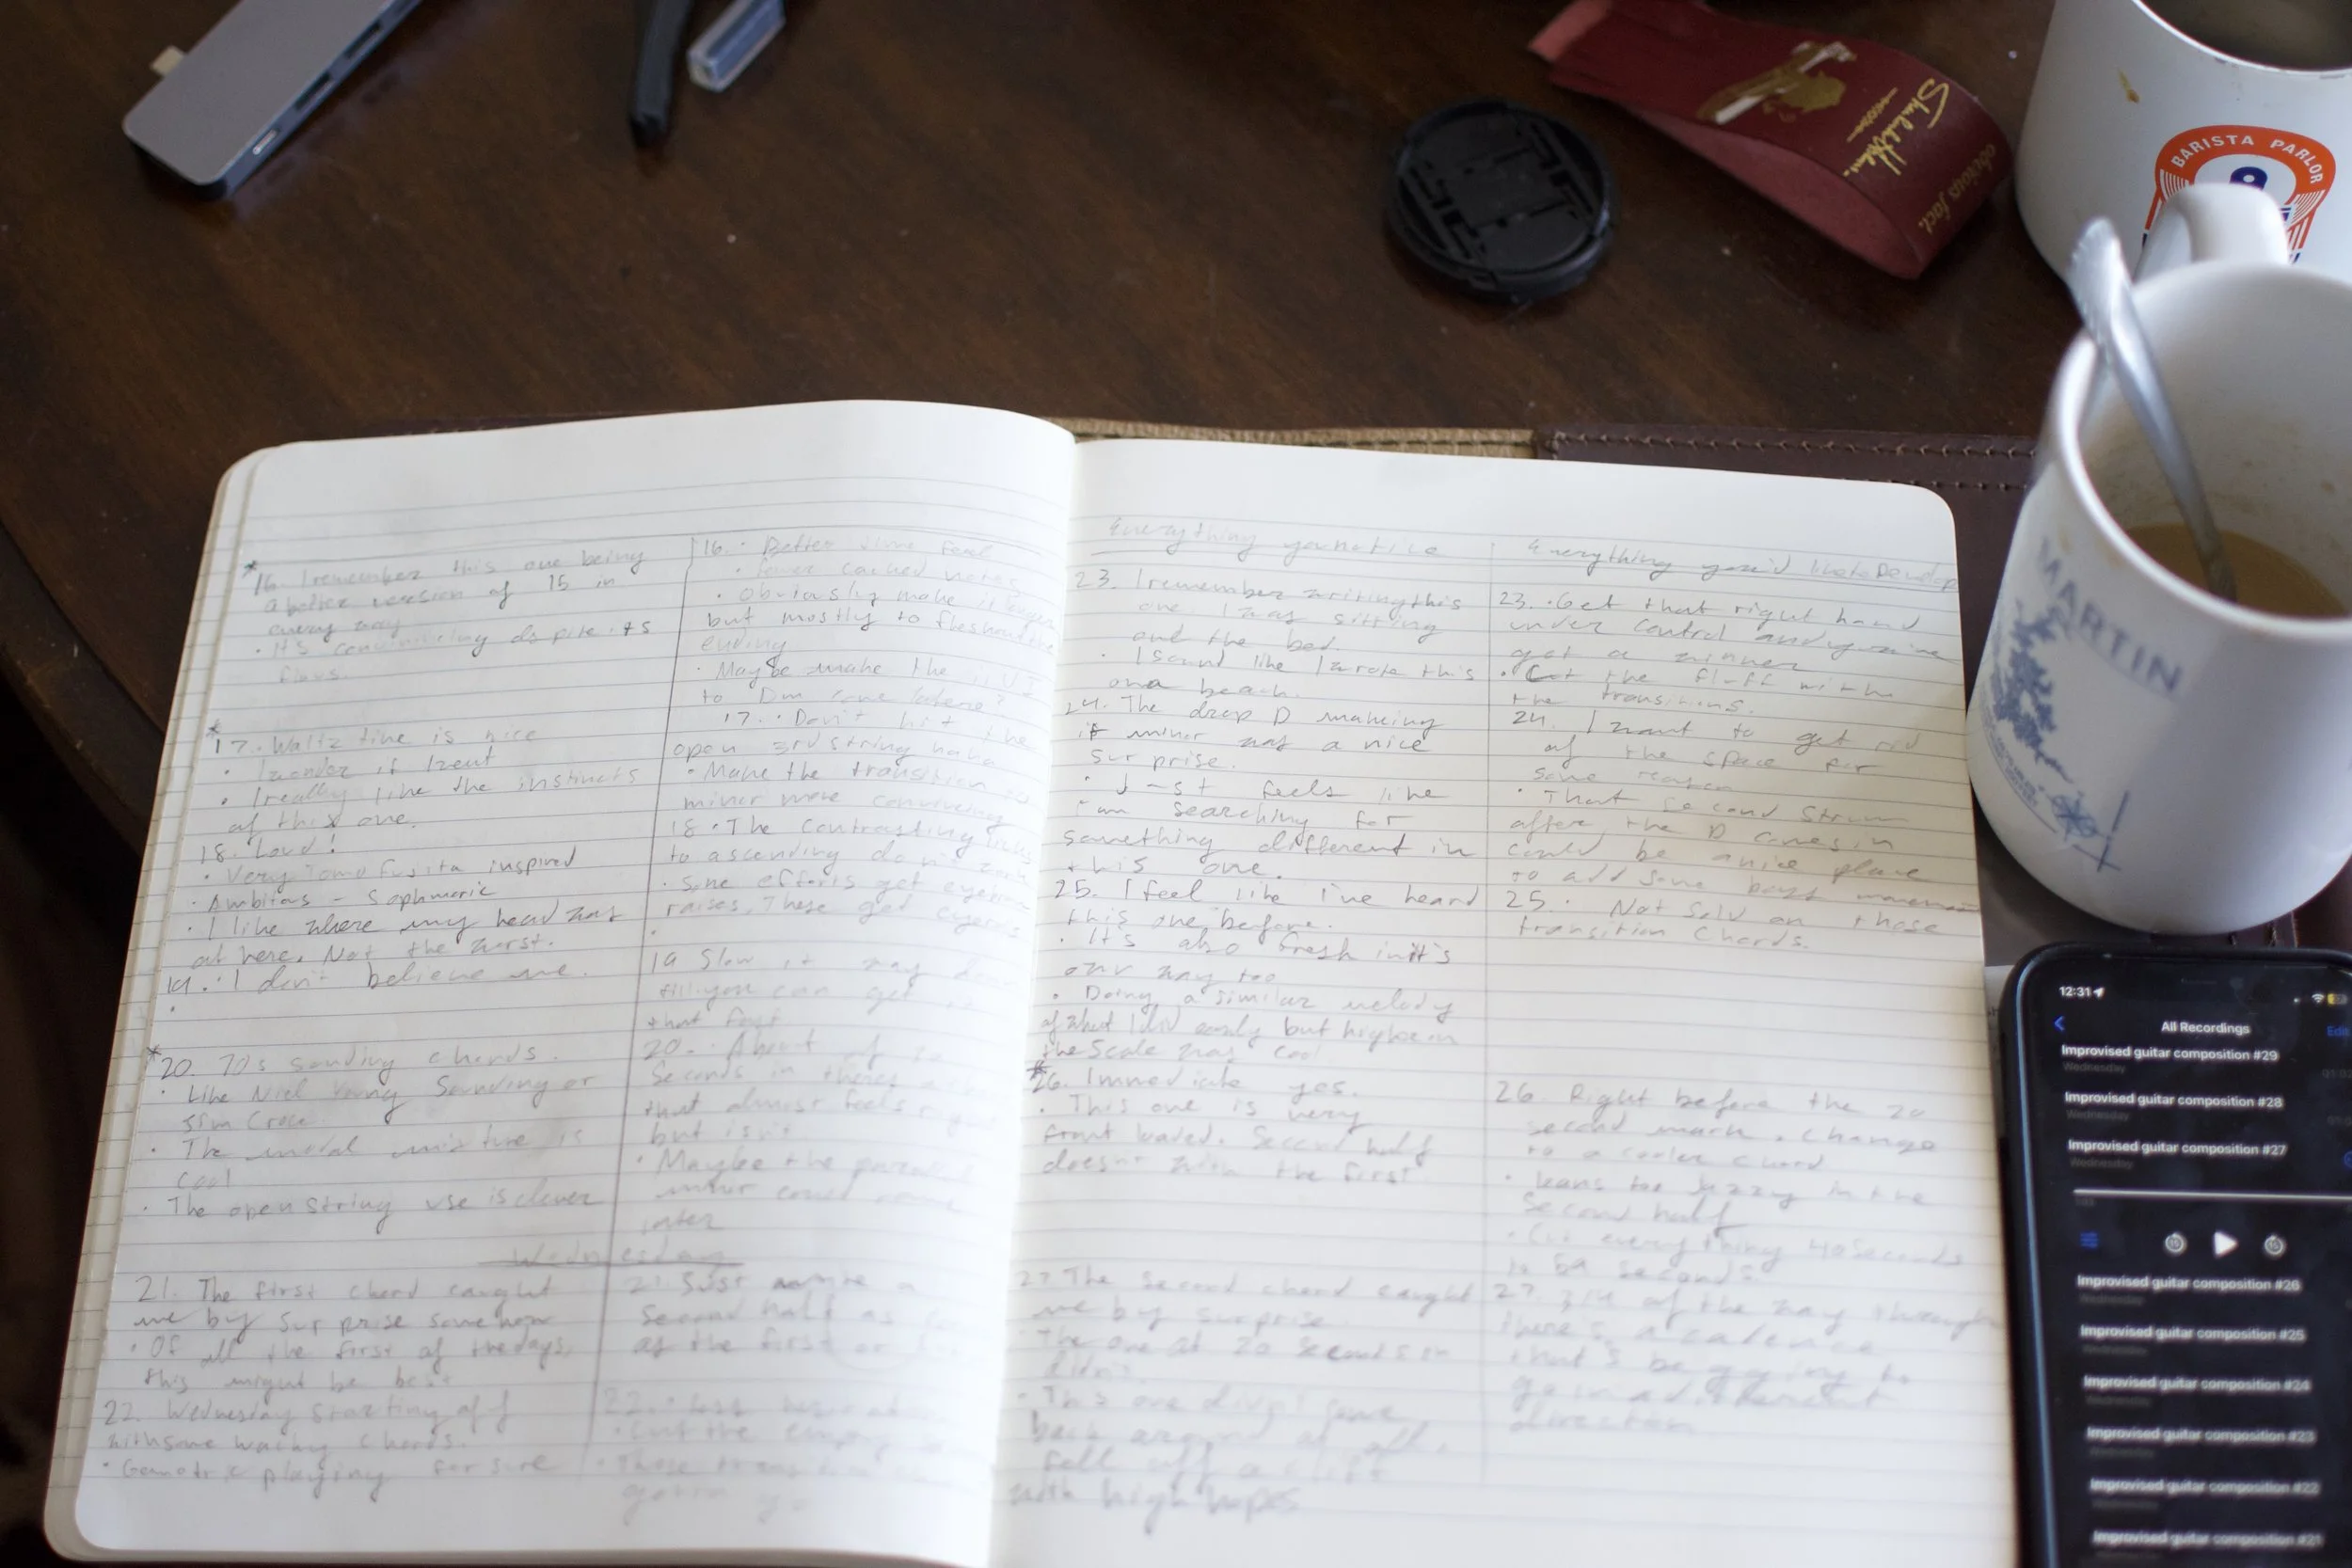 *16. I remember this one being
a better version of 15 in
every way
· It's convincing despite its
flaws.
*17. Waltz time is nice
· I wonder if I went
· I really like the instincts
of this one.
18. Loud!
· Very Tomo Fujita inspired
· Ambitous - Sophmoric
· I like where my head was
at here. Not the worst.
19. · I don't believe me.
*20. 70s sounding chords.
· Like Niel Young Sounding or
Jim Croce.
· The modal mixture is
cool
· The open string use is clever
Wednesday
21. The first chord caught
me by surprise somehow
· Of all the first of the days,
this might be best
22. Wednesday starting off
with some wacky chords.
· Geometric playing for sure
16. · Better time feel
· fewer cached notes
· Obviously make it longer
but mostly to flesh out the
ending
· Maybe make the VI
to Dm come later?
17. · Don't hit the
open 3rd string haha
· Make the transition to
minor more convincing
18 · The contrasting licks
to ascending don't work
· Some efforts get eyebrow
raises. These get eyerolls
19 Slow it way down
till you can get it
that fast
20. · About
seconds in there's a
that almost feels right
but isn't
· Maybe the parallel
minor could come
later
21. Just write a
second half as
as the first
22. · less
· Cut the empty
· Those
Everything you notice
23. I remember writing this
one. I was sitting
on the bed.
· I sound like I wrote this
on a beach.
24. The drop D making
it minor was a nice
surprise.
· Just feels like
I'm searching for
something different in
this one.
25. I feel like I've heard
this one before.
· It's also fresh in it's
own way too
· Doing a similar melody
of what I did early but higher in
the scale was cool
*26. Immediate yes.
· This one is very
front loaded. Second half
doesn't with the first
27. The second chord caught
me by surprise.
The one at 20 seconds in
didn't.
· This one didn't come
back around at all.
fell off a cliff
with high hopes
Everything you'd like to Develop
23. · Get that right hand
under control and you've
got a winner
· Cut the fluff with
the transitions.
24. I want to get rid
of the space for
some reason
· That second strum
after the D comes in
could be a nice place
to add some bass movement
25. · Not sold on those
transition chords.
26 Right before the 20
second mark, change
to a cooler chord
· leans too jazzy in the
second half
· Cut everything 40 seconds
to 59 seconds.
27. 3/4 of the way through
there's a cadence
that's begging to
go in a different
direction
BARISTA PARLOR
obvious fact.
MARTIN
12:31
All Recordings
Edit
Improvised guitar composition #29
Wednesday
Improvised guitar composition #28
Wednesday
Improvised guitar composition #27
Wednesday
Improvised guitar composition #26
Wednesday
Improvised guitar composition #25
Wednesday
Improvised guitar composition #24
Wednesday
Improvised guitar composition #23
Wednesday
Improvised guitar composition #22
Wednesday
Improvised guitar composition #21